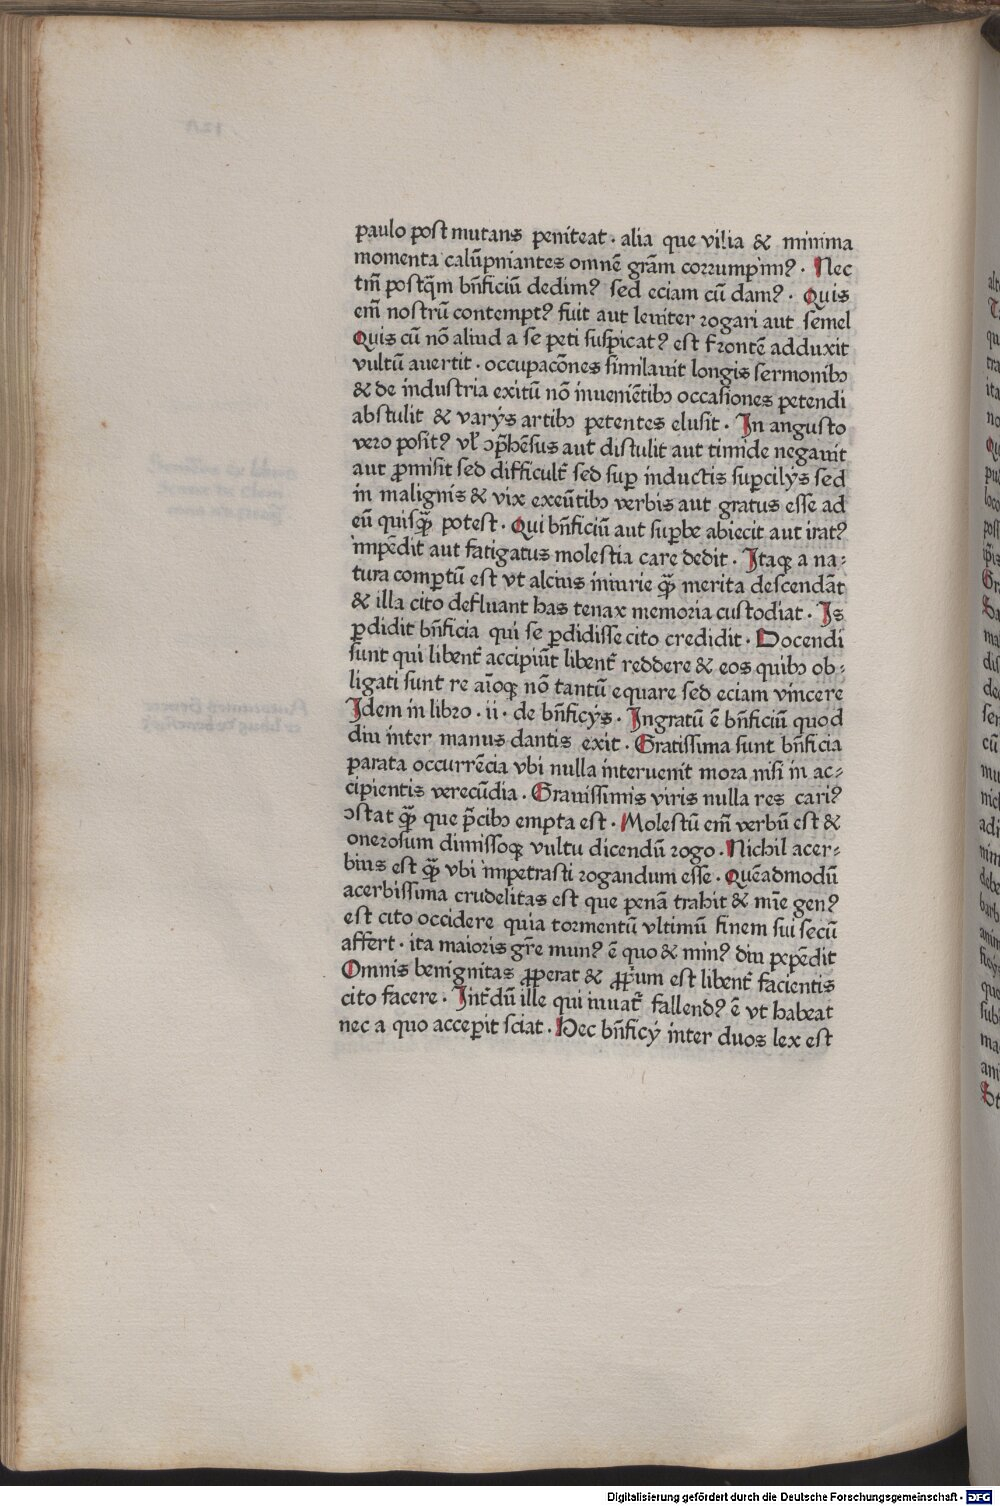 paulo post mutans peniteat · alia que vilia & minima
momenta calũpniantes omnẽ grãm corrumpim? · Nec
tm̃ postq̃m bñficiũ dedim? sed eciam cũ dam? · Quis
em̃ nostrũ contempt? fuit aut leuiter rogari aut semel
Quis cũ nõ aliud a se peti suspicat? est frontẽ adduxit
vultũ auertit · occupacõnes similauit longis sermonibꝫ
& de industria exitũ nõ inueniẽtibꝫ occasiones petendi
abstulit & varijs artibꝫ petentes elusit · In angusto
vero posit? vl̉ ꝯp̃hẽsus aut distulit aut timide negauit
aut ꝓmisit sed difficult̉ sed suꝑ inductis suꝑcilijs sed
in malignis & vix exeũtibꝫ verbis aut gratus esse ad
eũ quisq̃ potest · Qui bñficiũ aut suꝑbe abiecit aut irat?
impẽdit aut fatigatus molestia care dedit · Itaqꝫ a na⸗
tura comꝑtũ est vt alcius iniurie q̃ merita descendãt
& illa cito defluant has tenax memoria custodiat · Is
ꝑdidit bñficia qui se ꝑdidisse cito credidit · Docendi
sunt qui libent̉ accipiũt libent̉ reddere & eos quibꝫ ob⸗
ligati sunt re aĩoqꝫ nõ tantũ equare sed eciam vincere
Idem in libro · ii · de bñficijs · Ingratũ ẽ bñficiũ quod
diu inter manus dantis exit · Gratissima sunt bñficia
parata occurrẽcia vbi nulla interuenit mora nisi in ac⸗
cipientis verecũdia · Grauissimis viris nulla res cari?
ꝯstat q̃ que p̃cibꝫ empta est · Molestũ em̃ verbũ est &
onerosum dimissoqꝫ vultu dicendũ rogo · Nichil acer⸗
bius est q̃ vbi impetrasti rogandum esse · Quẽadmodũ
acerbissima crudelitas est que penã trahit & mĩe gen?
est cito occidere quia tormentũ vltimũ finem sui secũ
affert · ita maioris gr̃e mun? ẽ quo & min? diu peꝑẽdit
Omnis benignitas ꝓperat & ꝓp̉um est libent̉ facientis
cito facere · Int̉dũ ille qui iuuat̉ fallend? ẽ vt habeat
nec a quo acceꝑit sciat · Hec bñficij inter duos lex est
Digitalisierung gefördert durch die Deutsche Forschungsgemeinschaft - DFG